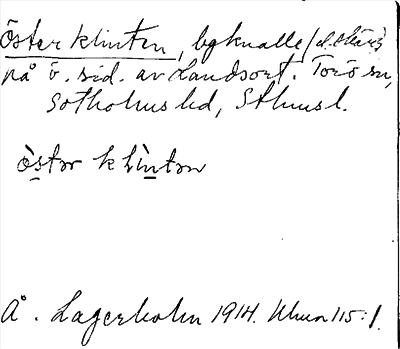 Österklinten, bgknalle/
på ö. sid. av Landsort. Torö sn,
Sotholms hd, Sthmsl.
östər klintən
Å. Lagerholm 1914. Uhvn 115:1.